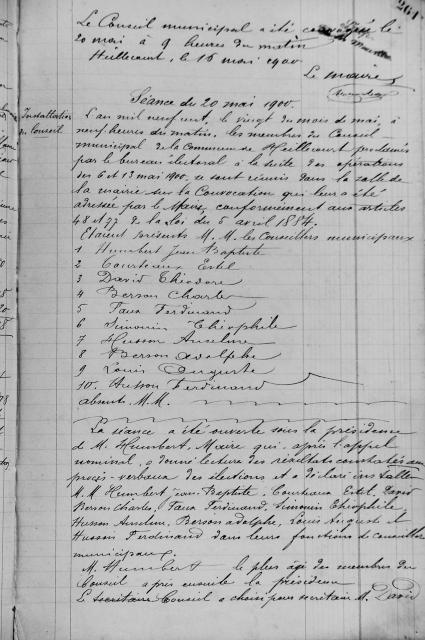 261
Le Conseil municipal a été convoqué le
20 mai à 9 heures du matin
Heillecourt, le 15 mai 1900
Le maire
Séance du 20 mai 1900.
Installation
du Conseil
L'an mil neuf cent, le vingt du mois de mai, à
neuf heures du matin, les membres du Conseil
municipal de la Commune de Heillecourt proclamés
par le bureau électoral à la suite des opérations
des 6 et 13 mai 1900, se sont réunis dans la salle de
la mairie sur la Convocation qui leur a été
adressée par le Maire, conformément aux articles
48 et 77 de la loi du 5 avril 1884.
Etaient présents M. M. les Conseillers municipaux
1 Humbert Jean Baptiste
2 Courteaux Estel
3 David Théodore
4 Berson Charles
5 Ferdinand
6 Simonin Théophile
7 Husson Anselme
8 Berson Adolphe
9 Louis Auguste
10. Husson Ferdinand
absents M. M.
La séance a été ouverte sous la présidence
de M. Humbert, Maire qui, après l'appel
nominal, a donné lecture des résultats constatés aux
procès-verbaux des élections et a déclaré installer
M. M Humbert jean-Baptiste, Courteaux Estel, David
Berson Charles, Ferdinand, Simonin Théophile
Husson Anselme, Berson adolphe, Louis Auguste et
Husson Ferdinand dans leurs fonctions de conseillers
municipaux.
M. Humbert le plus âgé des membres du
Conseil a pris ensuite la présidence
Le Conseil a choisi pour secrétaire M. David